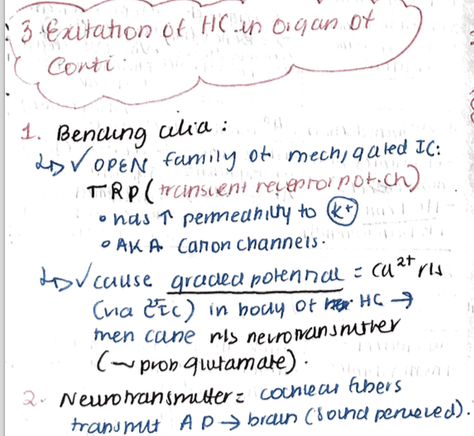 3 Exitation of HC in Organ of
Conti
1. Bending cilia :
↳ ✓ OPEN family of mech, gated IC:
TRP (transient receptor pot. ch)
• has ↑ permeability to K+
• AKA Cation channels.
↳ ✓ cause graded potential = Ca2+ rls
(via IC) in body of HC →
then rls neurotransmitter
(~ prob glutamate).
2. Neurotransmitter = cochlear fibers
transmit AP → brain (sound perceived).